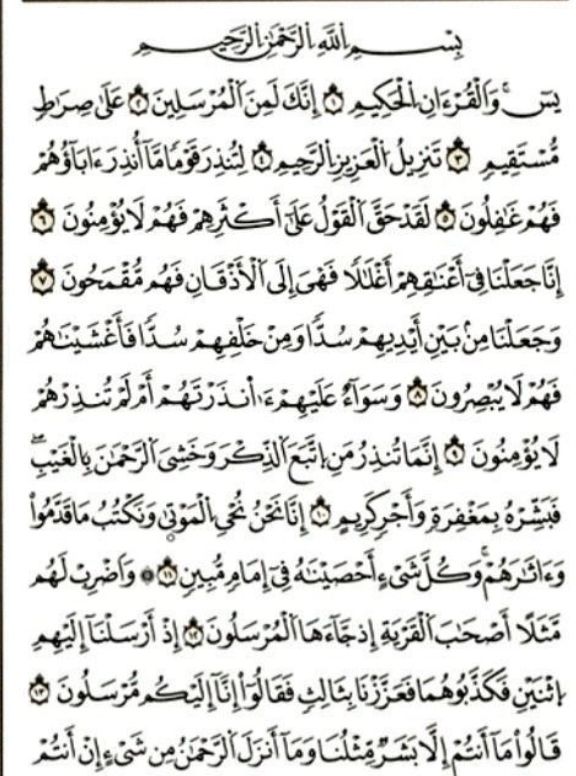 بِسْمِ اِللَّهِ اِلرَّحْمَٰنِ اِلرَّحِيمِ
يسٓ ۚ وَالْقُرْءَانِ اِلْحَكِيمِ ١ إِنَّكَ لَمِنَ اَلْمُرْسَلِينَ ٢ عَلَىٰ صِرَٰطٖ
مُّسْتَقِيمٖ ٣ تَنزِيلُ اُلْعَزِيزِ اِلرَّحِيمِ ٤ لِتُنذِرَ قَوْمٗا مَّآ أُنذِرَ ءَابَآؤُهُمْ
فَهُمْ غَٰفِلُونَ ٥ لَقَدْ حَقَّ اَلْقَوْلُ عَلَىٰٓ أَكْثَرِهِمْ فَهُمْ لَا يُؤْمِنُونَ ٦
إِنَّا جَعَلْنَا فِيٓ أَعْنَٰقِهِمْ أَغْلَٰلٗا فَهْيَ إِلَى اَلْأَذْقَانِ فَهُم مُّقْمَحُونَ ٧
وَجَعَلْنَا مِنۢ بَيْنِ أَيْدِيهِمْ سُدّٗا وَمِنْ خَلْفِهِمْ سُدّٗا فَأَغْشَيْنَٰهُمْ
فَهُمْ لَا يُبْصِرُونَ ٨ وَسَوَآءٌ عَلَيْهِمْ ءَا۬نذَرْتَهُمْ أَمْ لَمْ تُنذِرْهُمْ
لَا يُؤْمِنُونَ ٩ إِنَّمَا تُنذِرُ مَنِ اِتَّبَعَ اَلذِّكْرَ وَخَشِيَ اَلرَّحْمَٰنَ بِالْغَيْبِۖ
فَبَشِّرْهُ بِمَغْفِرَةٖ وَأَجْرٖ كَرِيمٍ ١٠ إِنَّا نَحْنُ نُحْيِ اِلْمَوْتَىٰ وَنَكْتُبُ مَا قَدَّمُواْ
وَءَاثَٰرَهُمْۚ وَكُلَّ شَيْءٍ أَحْصَيْنَٰهُ فِيٓ إِمَامٖ مُّبِينٖ ١١ ۞ وَاضْرِبْ لَهُم
مَّثَلًا أَصْحَٰبَ اَلْقَرْيَةِ إِذْ جَآءَهَا اَلْمُرْسَلُونَ ١٢ إِذْ أَرْسَلْنَآ إِلَيْهِمُ
اُثْنَيْنِ فَكَذَّبُوهُمَا فَعَزَّزْنَا بِثَالِثٖ فَقَالُوٓاْ إِنَّآ إِلَيْكُم مُّرْسَلُونَ ١٣
قَالُواْ مَآ أَنتُمْ إِلَّا بَشَرٞ مِّثْلُنَا وَمَآ أَنزَلَ اَلرَّحْمَٰنُ مِن شَيْءٍ إِنْ أَنتُمْ